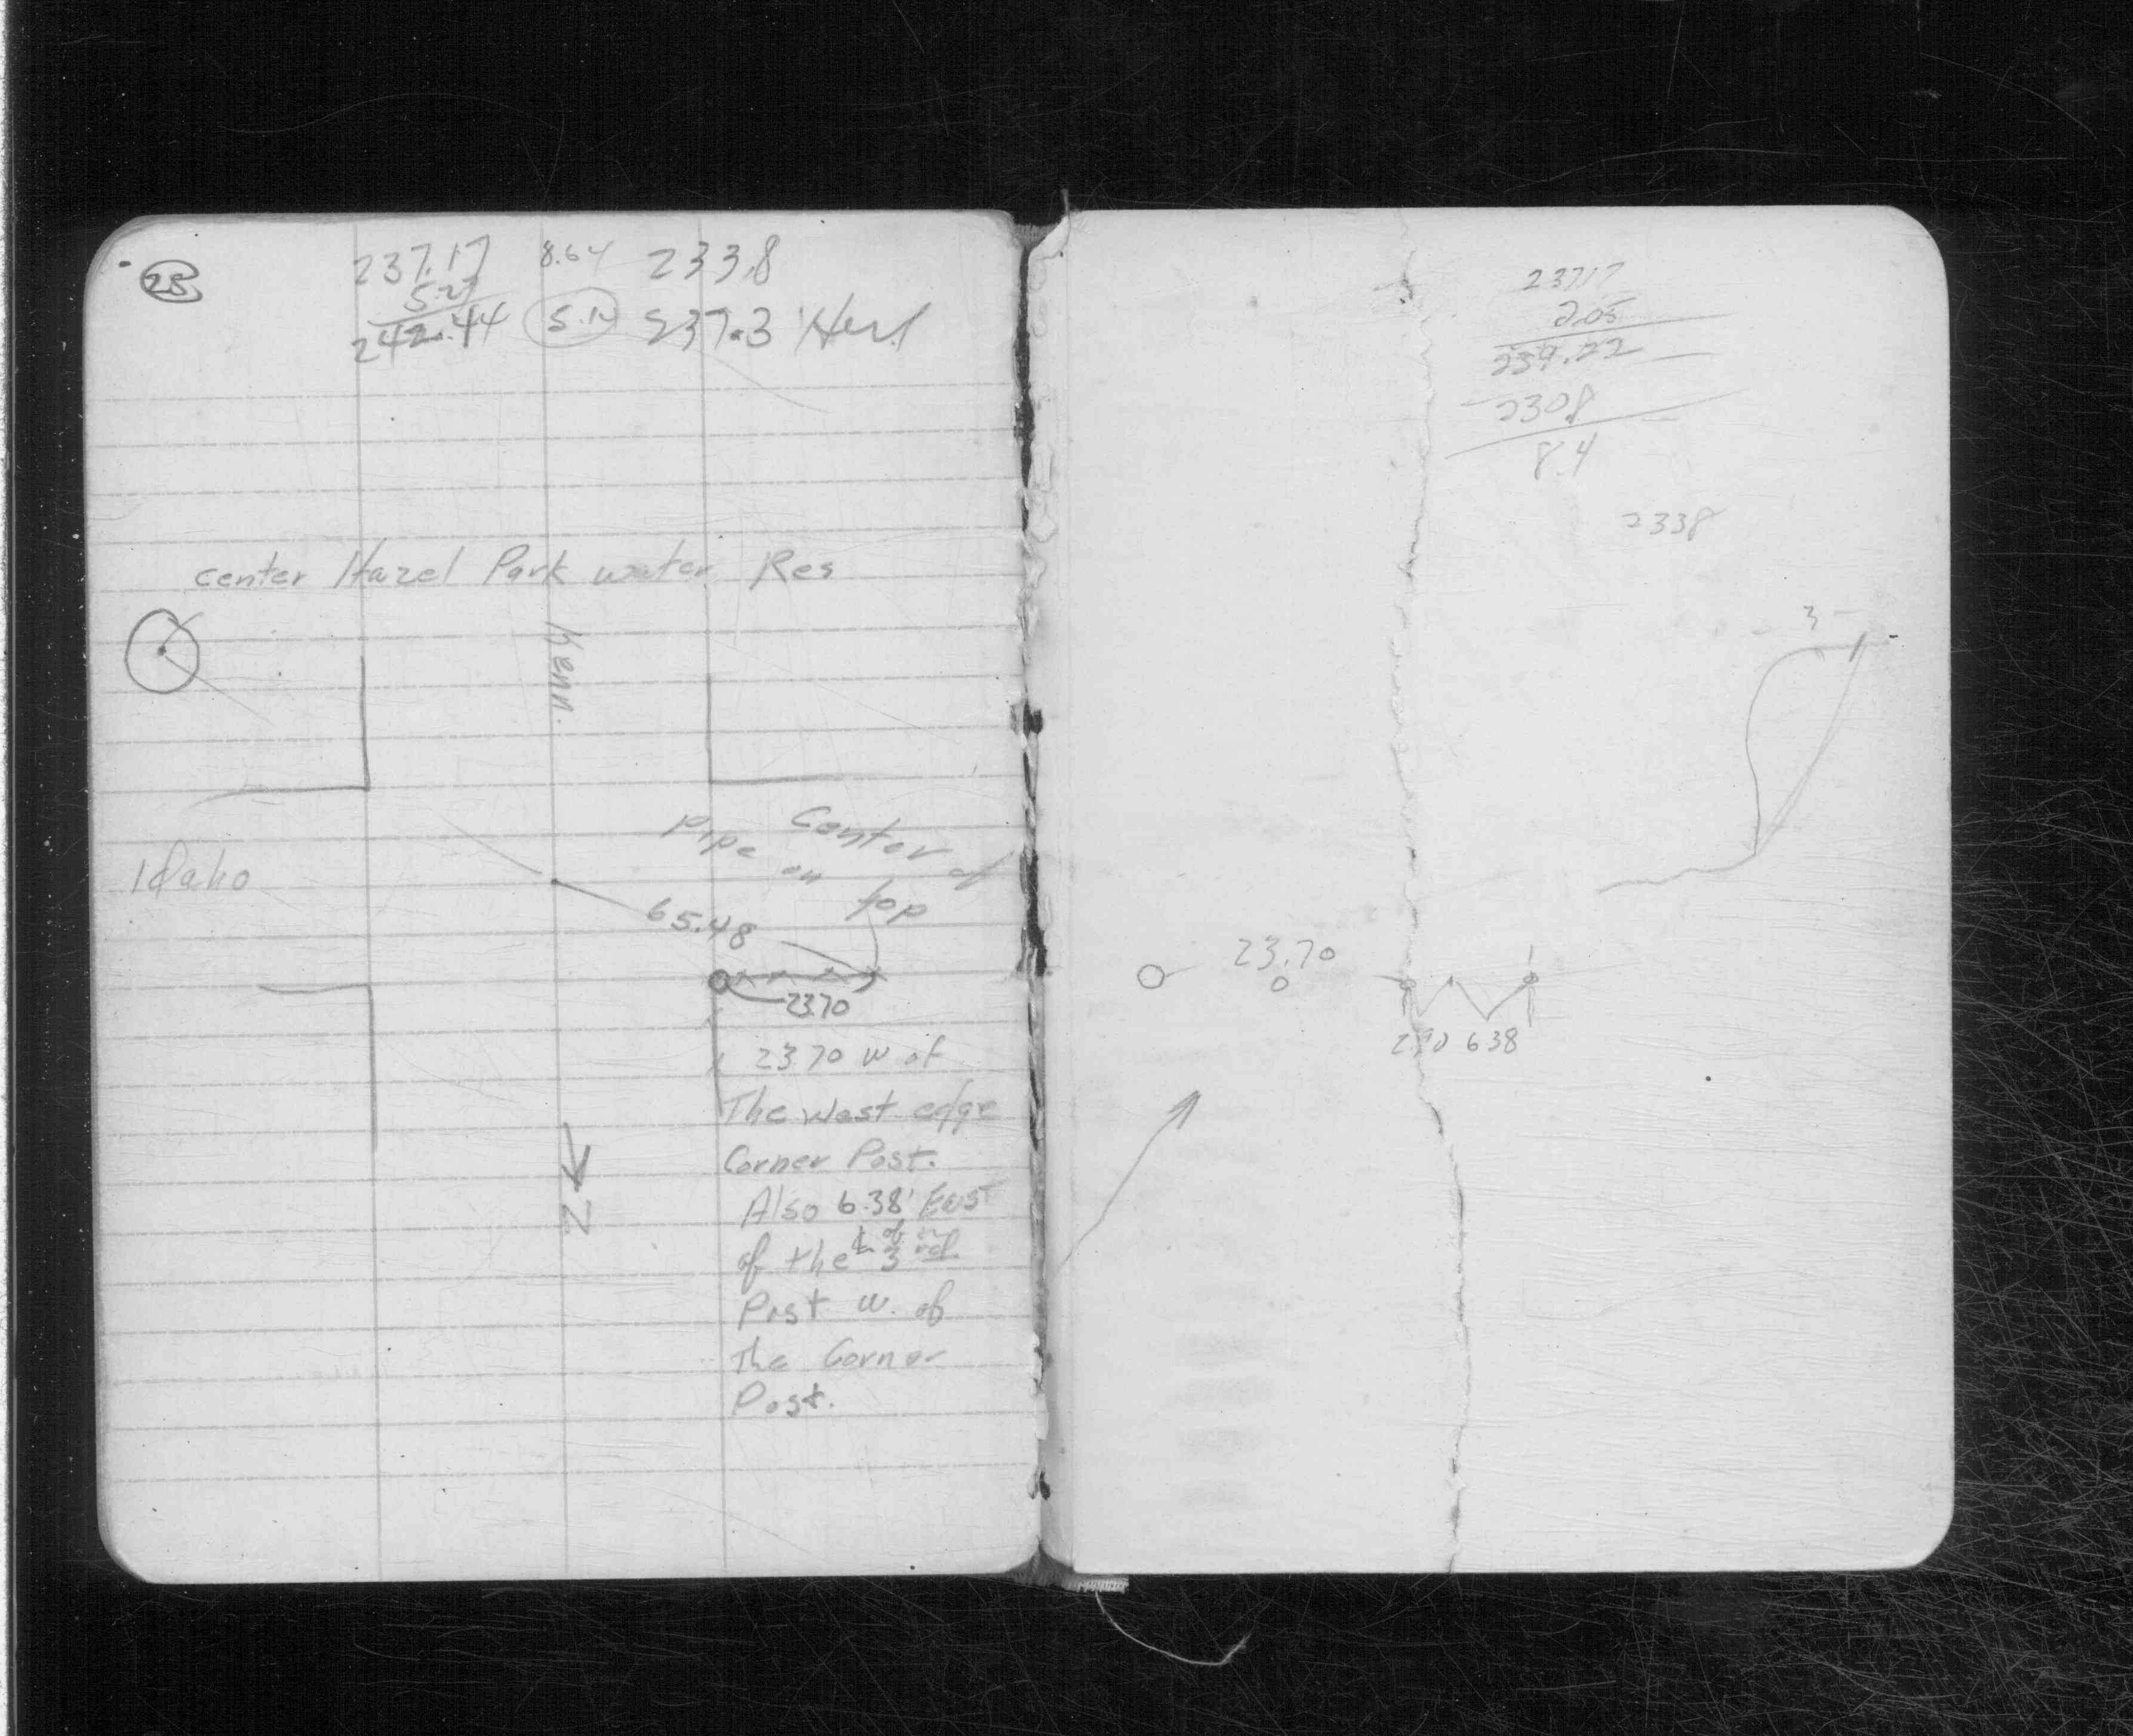 28
237.17 8.64 233.8
5.27
242.44 5.14 237.3
center Hazel Park water Res
Kenn.
Pipe on Center of top
Idaho
65.48
23.70
23.70 w of
The West edge
Corner Post.
Also 6.38' East
of the ℄ of 3rd
Post w. of
The Corner
Post.
N
23717
2.05
239.22
2308
8.4
2338
3
23.70
2.90 638